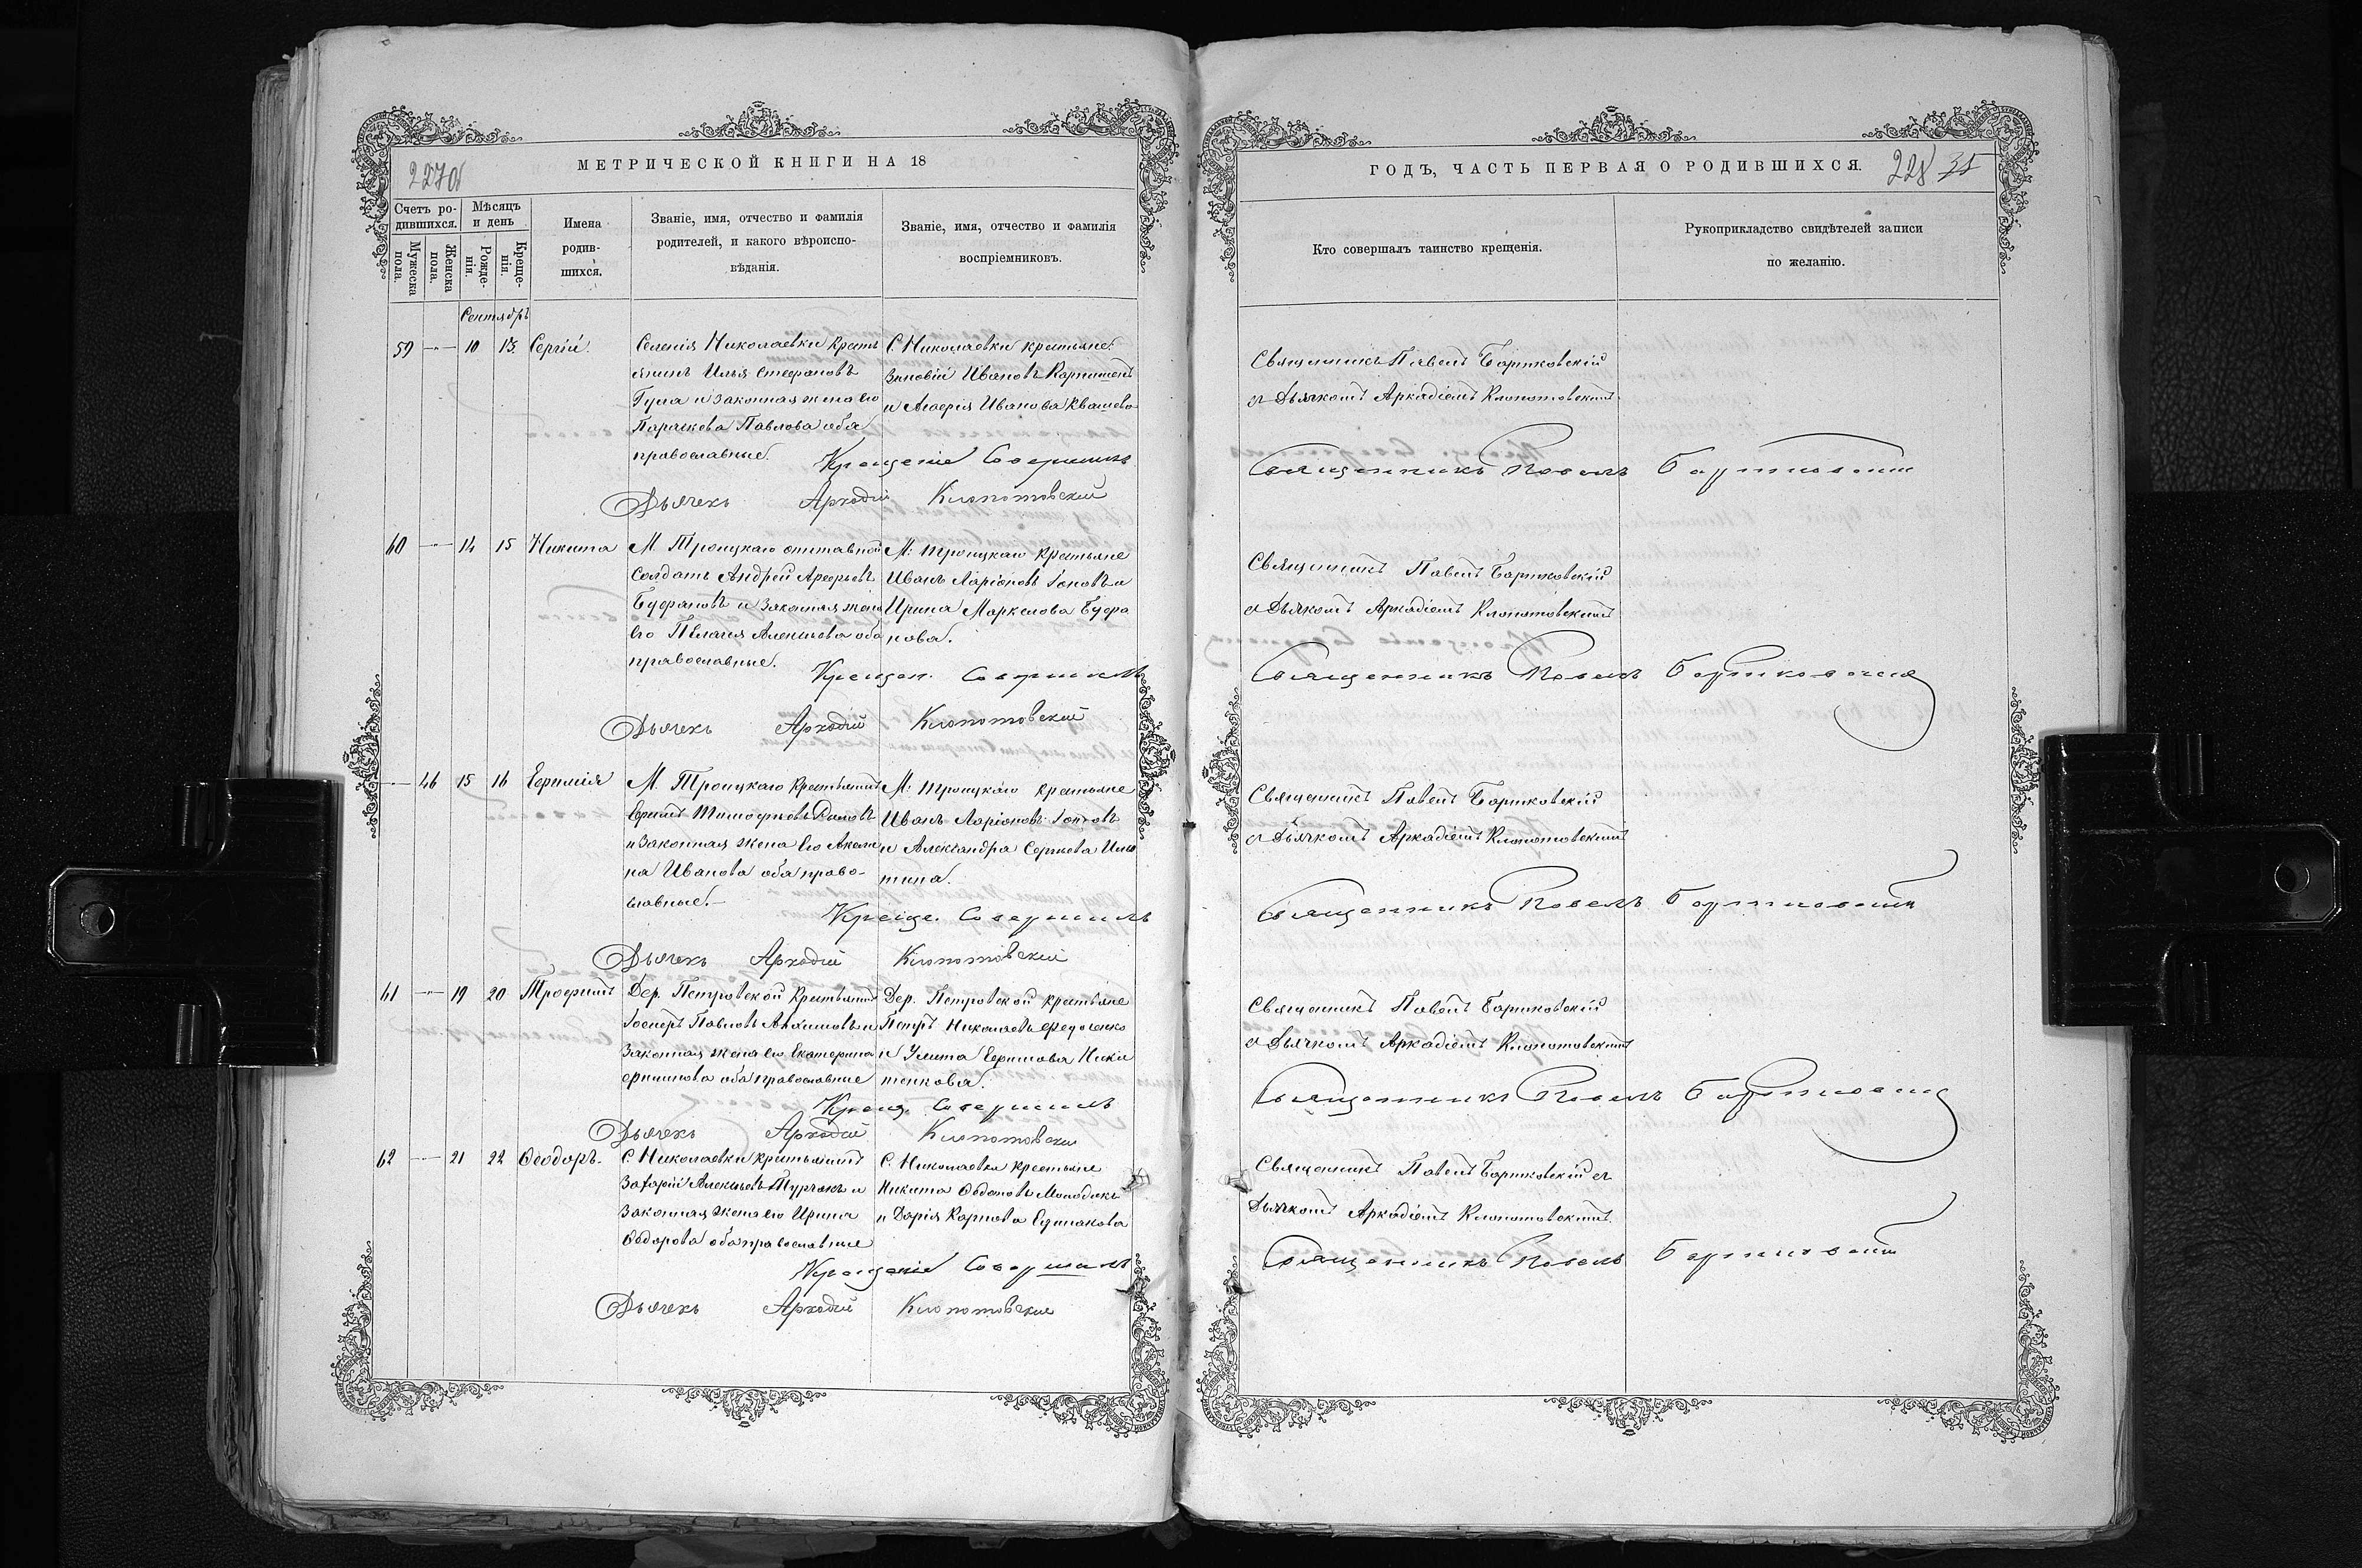 227об
МЕТРИЧЕСКОЙ КНИГИ НА 18
Счетъ ро-
дившихся.
Мѣсяцъ
и день
Мужеска
пола.
Женска
пола.
Рожде-
нія.
Креще-
нія.
Имена
родив-
шихся.
Званіе, имя, отчество и фамилія
родителей, и какого вѣроиспо-
вѣданія.
Званіе, имя, отчество и фамилія
воспріемниковъ.
Сентябрь
59 — 10 13. Сергій.
Селенія Николаевки крестъ
янинъ Илья Стефановъ
Гула и законная жена его
Параскева Павлова оба
православные.
С. Николаевки крестьяне:
Зиновій Ивановъ
и Агафія Иванова
Крещеніе Совершилъ
Дьячекъ Аркадій Клопотовскій
60 — 14 15 Никита
М. Троицкаго отставной
солдатъ Андрей Арефьевъ
Буфановъ и законная жена
его Пелагія Алексѣева оба
православные.
М. Троицкаго крестьяне
Иванъ Ларіоновъ Іоновъ и
Ирина Маркелова Буфа
нова.
Крещен. Совершилъ
Дьячекъ Аркадій Клопотовскій
— 46 15 16 Евфимія
М. Троицкаго крестьянинъ
Ефимъ Тимофѣевъ
и законная жена его Акели
на Иванова оба право-
славные.—
М. Троицкаго крестьяне
Иванъ Ларіоновъ Іоновъ
и Александра Сергѣева
тина.
Креще. Совершилъ
Дьячекъ Аркадій Клопотовскій
61 — 19 20 Трофимъ
Дер. Петровской крестьянинъ
Іосифъ Павловъ и
законная жена его Екатерина
оба православные
Дер. Петровской крестьяне
Петръ Николаевъ Федоченко
и Улита Ефимова Ники
тенкова.
Крещ. Совершилъ
Дьячекъ Аркадій Клопотовскій
62 — 21 22 Ѳеодоръ.
С. Николаевки крестьянинъ
Захарій Алексѣевъ и
законная жена его Ирина
Ѳедорова оба православные
С. Николаевки крестьяне
Никита
и Дарія Карпова
Крещеніе Совершилъ
Дьячекъ Аркадій Клопотовскій
ГОДЪ, ЧАСТЬ ПЕРВАЯ О РОДИВШИХСЯ.
228
Кто совершалъ таинство крещенія.
Рукоприкладство свидѣтелей записи
по желанію.
Священникъ Павелъ Бартковскій
съ Дьячкомъ Аркадіемъ Клопотовскимъ
Священникъ Павелъ Бартковскій
Священникъ Павелъ Бартковскій
съ Дьячкомъ Аркадіемъ Клопотовскимъ
Священникъ Павелъ Бартковскій
Священникъ Павелъ Бартковскій
съ Дьячкомъ Аркадіемъ Клопотовскимъ
Священникъ Павелъ Бартковскій
Священникъ Павелъ Бартковскій
съ Дьячкомъ Аркадіемъ Клопотовскимъ
Священникъ Павелъ Бартковскій
Священникъ Павелъ Бартковскій съ
Дьячкомъ Аркадіемъ Клопотовскимъ.
Священникъ Павелъ Бартковскій